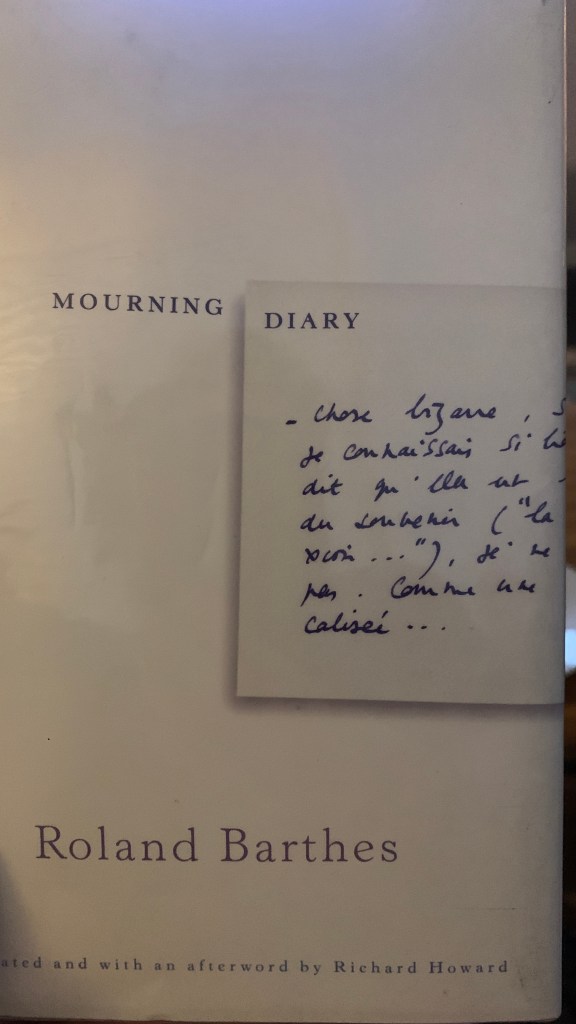 MOURNING DIARY
- Chose bizarre, s
je connaissais si bi
dit qu'elle est
du souvenir ("la
xion ..."), je ne
pas. Comme une
calisée ...
Roland Barthes
ated and with an afterword by Richard Howard